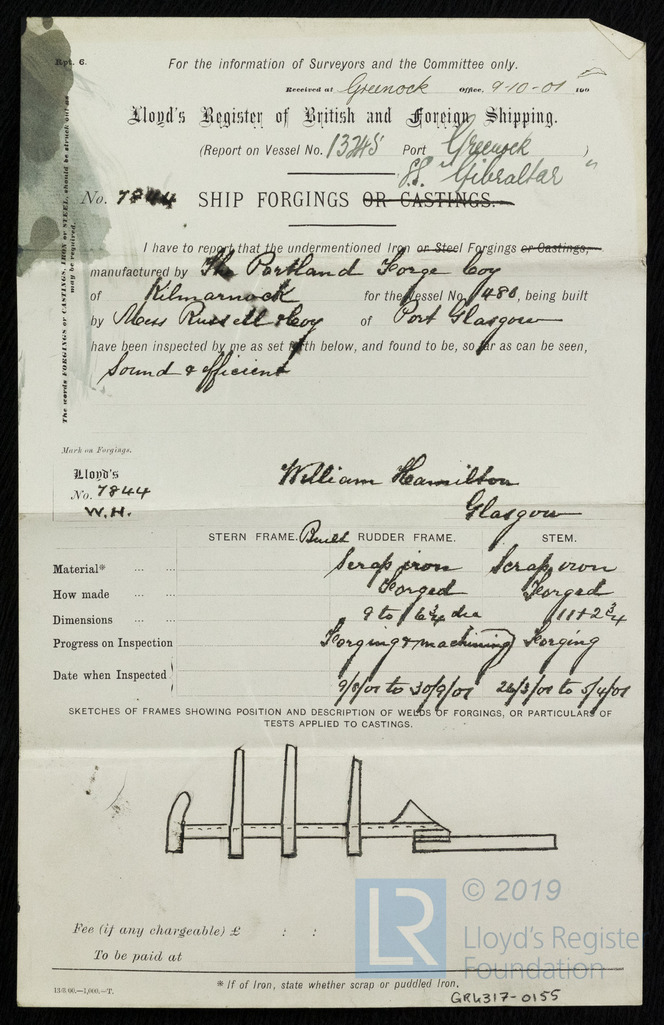 Rpt. 6.
For the information of Surveyors and the Committee only.
Received at Greenock Office, 9-10-01 190
Lloyd's Register of British and Foreign Shipping.
(Report on Vessel No. 13245 Port Greenock )
S.S. "Gibraltar"
No. 7844 SHIP FORGINGS OR CASTINGS.
The words FORGINGS or CASTINGS, IRON or STEEL, should be struck out as may be required.
I have to report that the undermentioned Iron or Steel Forgings or Castings,
manufactured by The Portland Forge Coy
of Kilmarnock for the Vessel No. 480, being built
by Mess Russell & Coy of Port Glasgow
have been inspected by me as set forth below, and found to be, so far as can be seen,
Sound & efficient
Mark on Forgings.
Lloyd's
No. 7844
W.H.
William Hamilton
Glasgow
STERN FRAME. Built RUDDER FRAME. STEM.
Material* ... ... Scrap iron Scrap iron
How made ... ... Forged Forged
Dimensions ... ... 9 to 6 3/4 dia 11 + 2 3/4
Progress on Inspection Forging & machining Forging
Date when Inspected 9/8/01 to 30/9/01 26/3/01 to 5/4/01
SKETCHES OF FRAMES SHOWING POSITION AND DESCRIPTION OF WELDS OF FORGINGS, OR PARTICULARS OF
TESTS APPLIED TO CASTINGS.
Fee (if any chargeable) £ : :
To be paid at
LR © 2019
Lloyd's Register
Foundation
* If of Iron, state whether scrap or puddled Iron.
13/8/00.—1,000.—T.
GRK317-0155